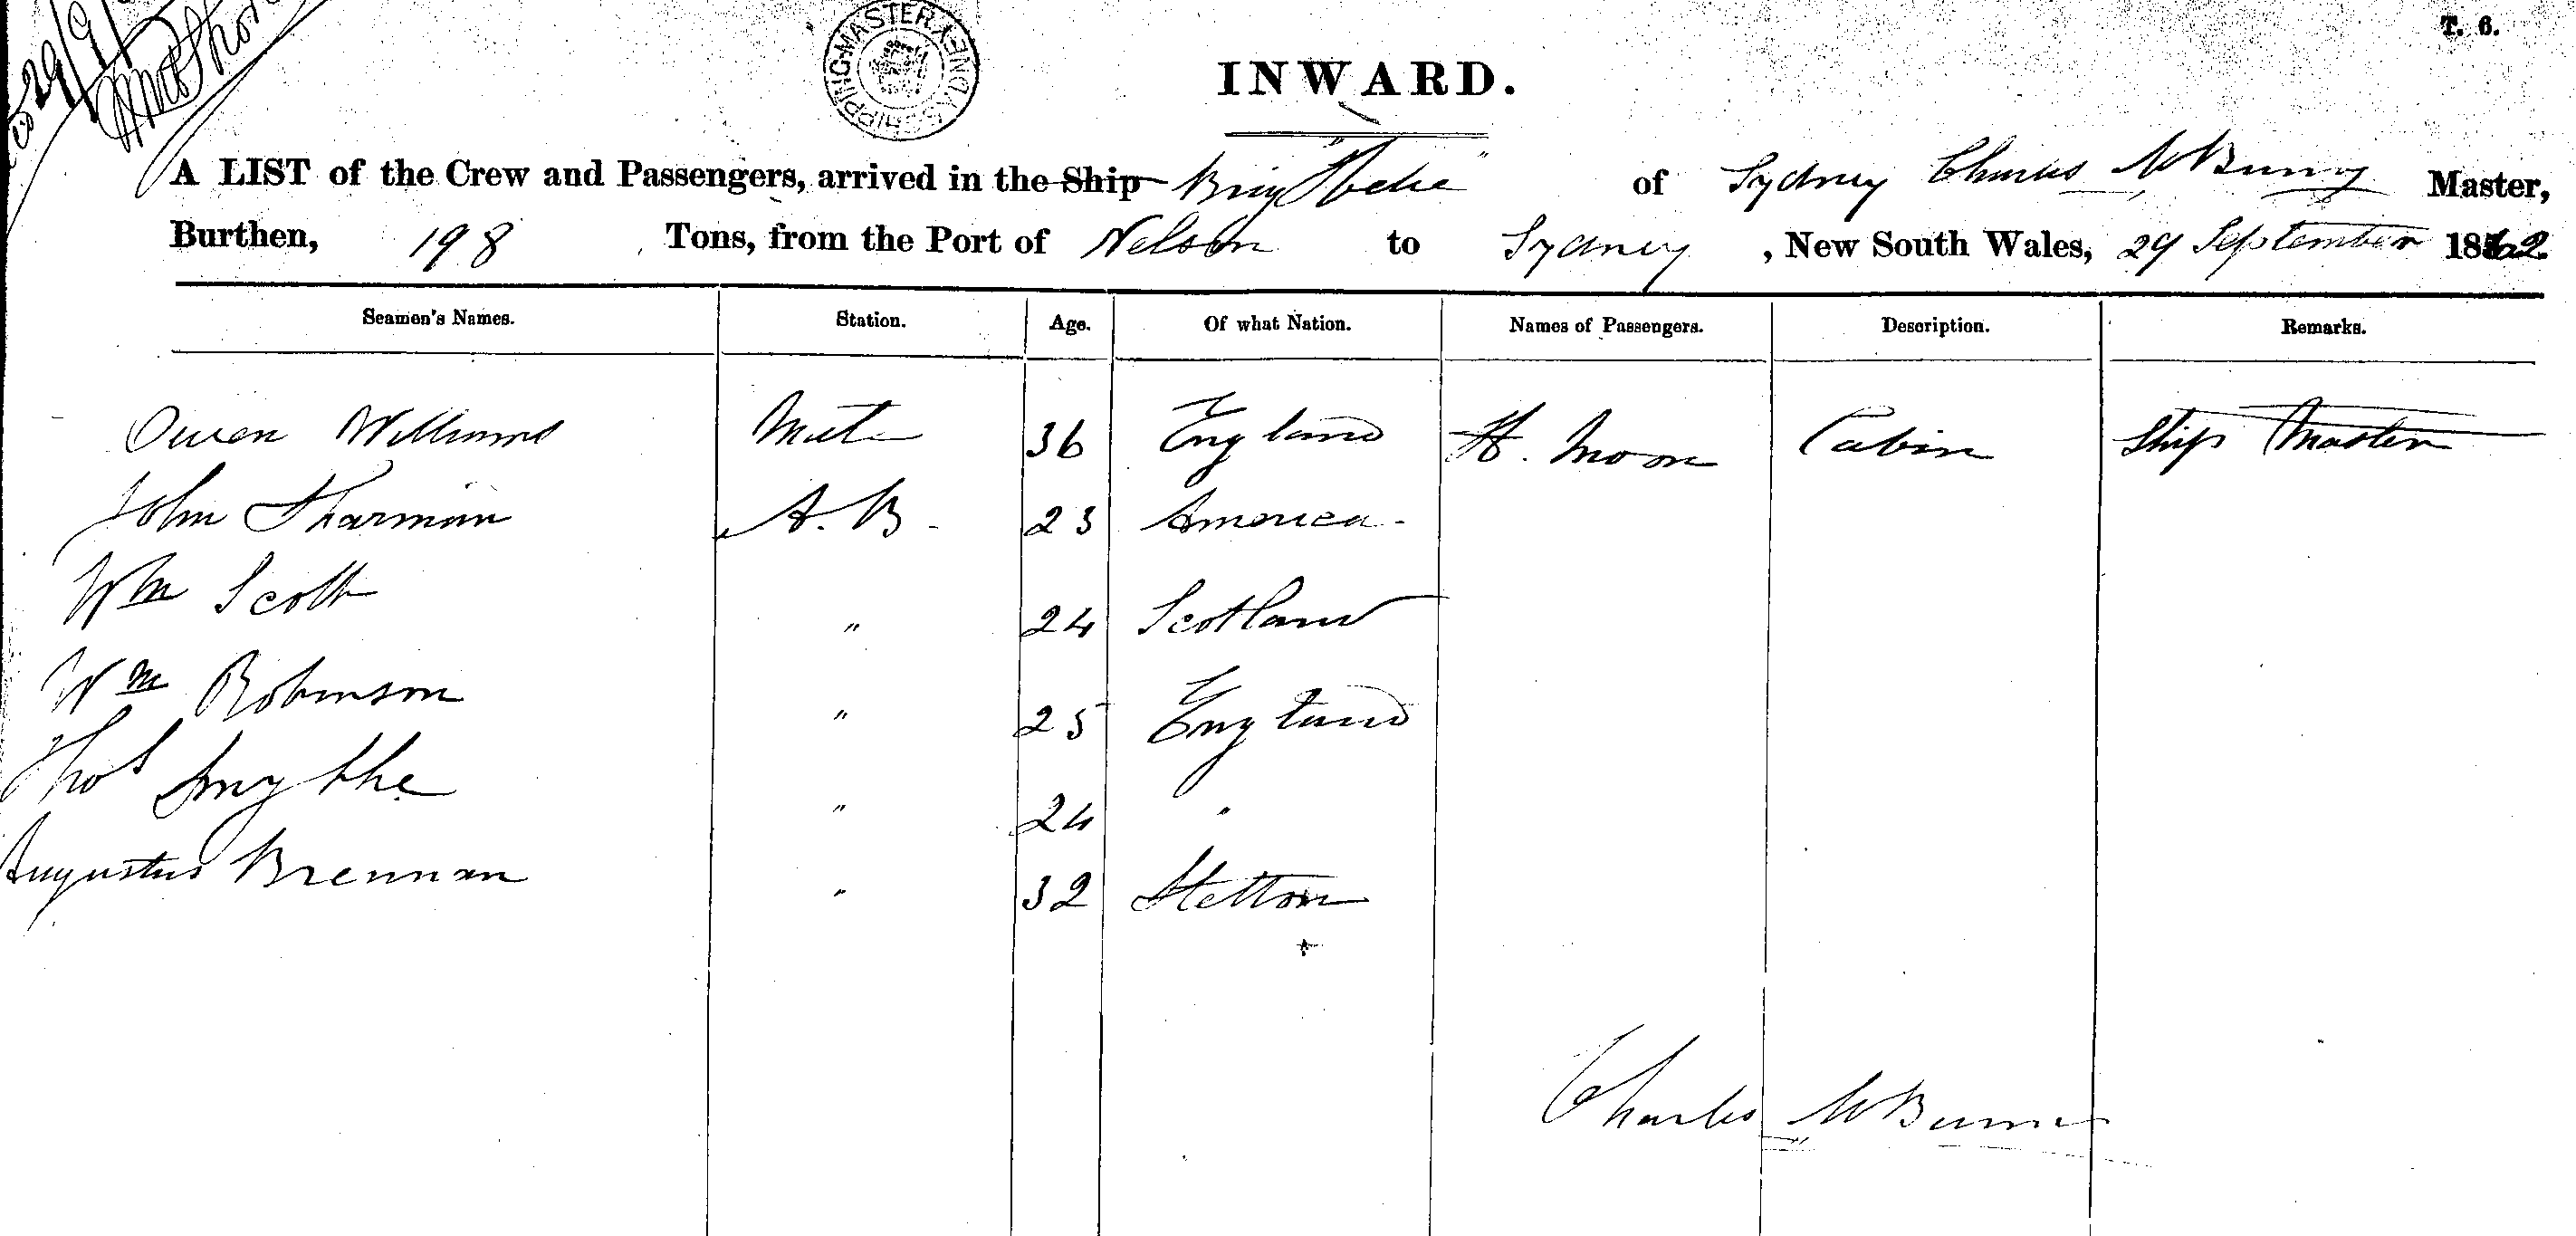 T. 6.
SHIPPING MASTER SYDNEY
INWARD.
A LIST of the Crew and Passengers, arrived in the Ship Brig "Hebe" of Sydney Charles McBurny Master,
Burthen, 198 Tons, from the Port of Nelson to Sydney, New South Wales, 29 September 1862
Seamen's Names. Station. Age. Of what Nation. Names of Passengers. Description. Remarks.
Owen Williams Mate 36 England H. Moon Cabin Ship Master
John Sharman A.B. 23 America
Wm Scott " 24 Scotland
Wm Robinson " 25 England
Thos Smythe " 24 "
Augustus Brennan " 32 Stetton
Charles